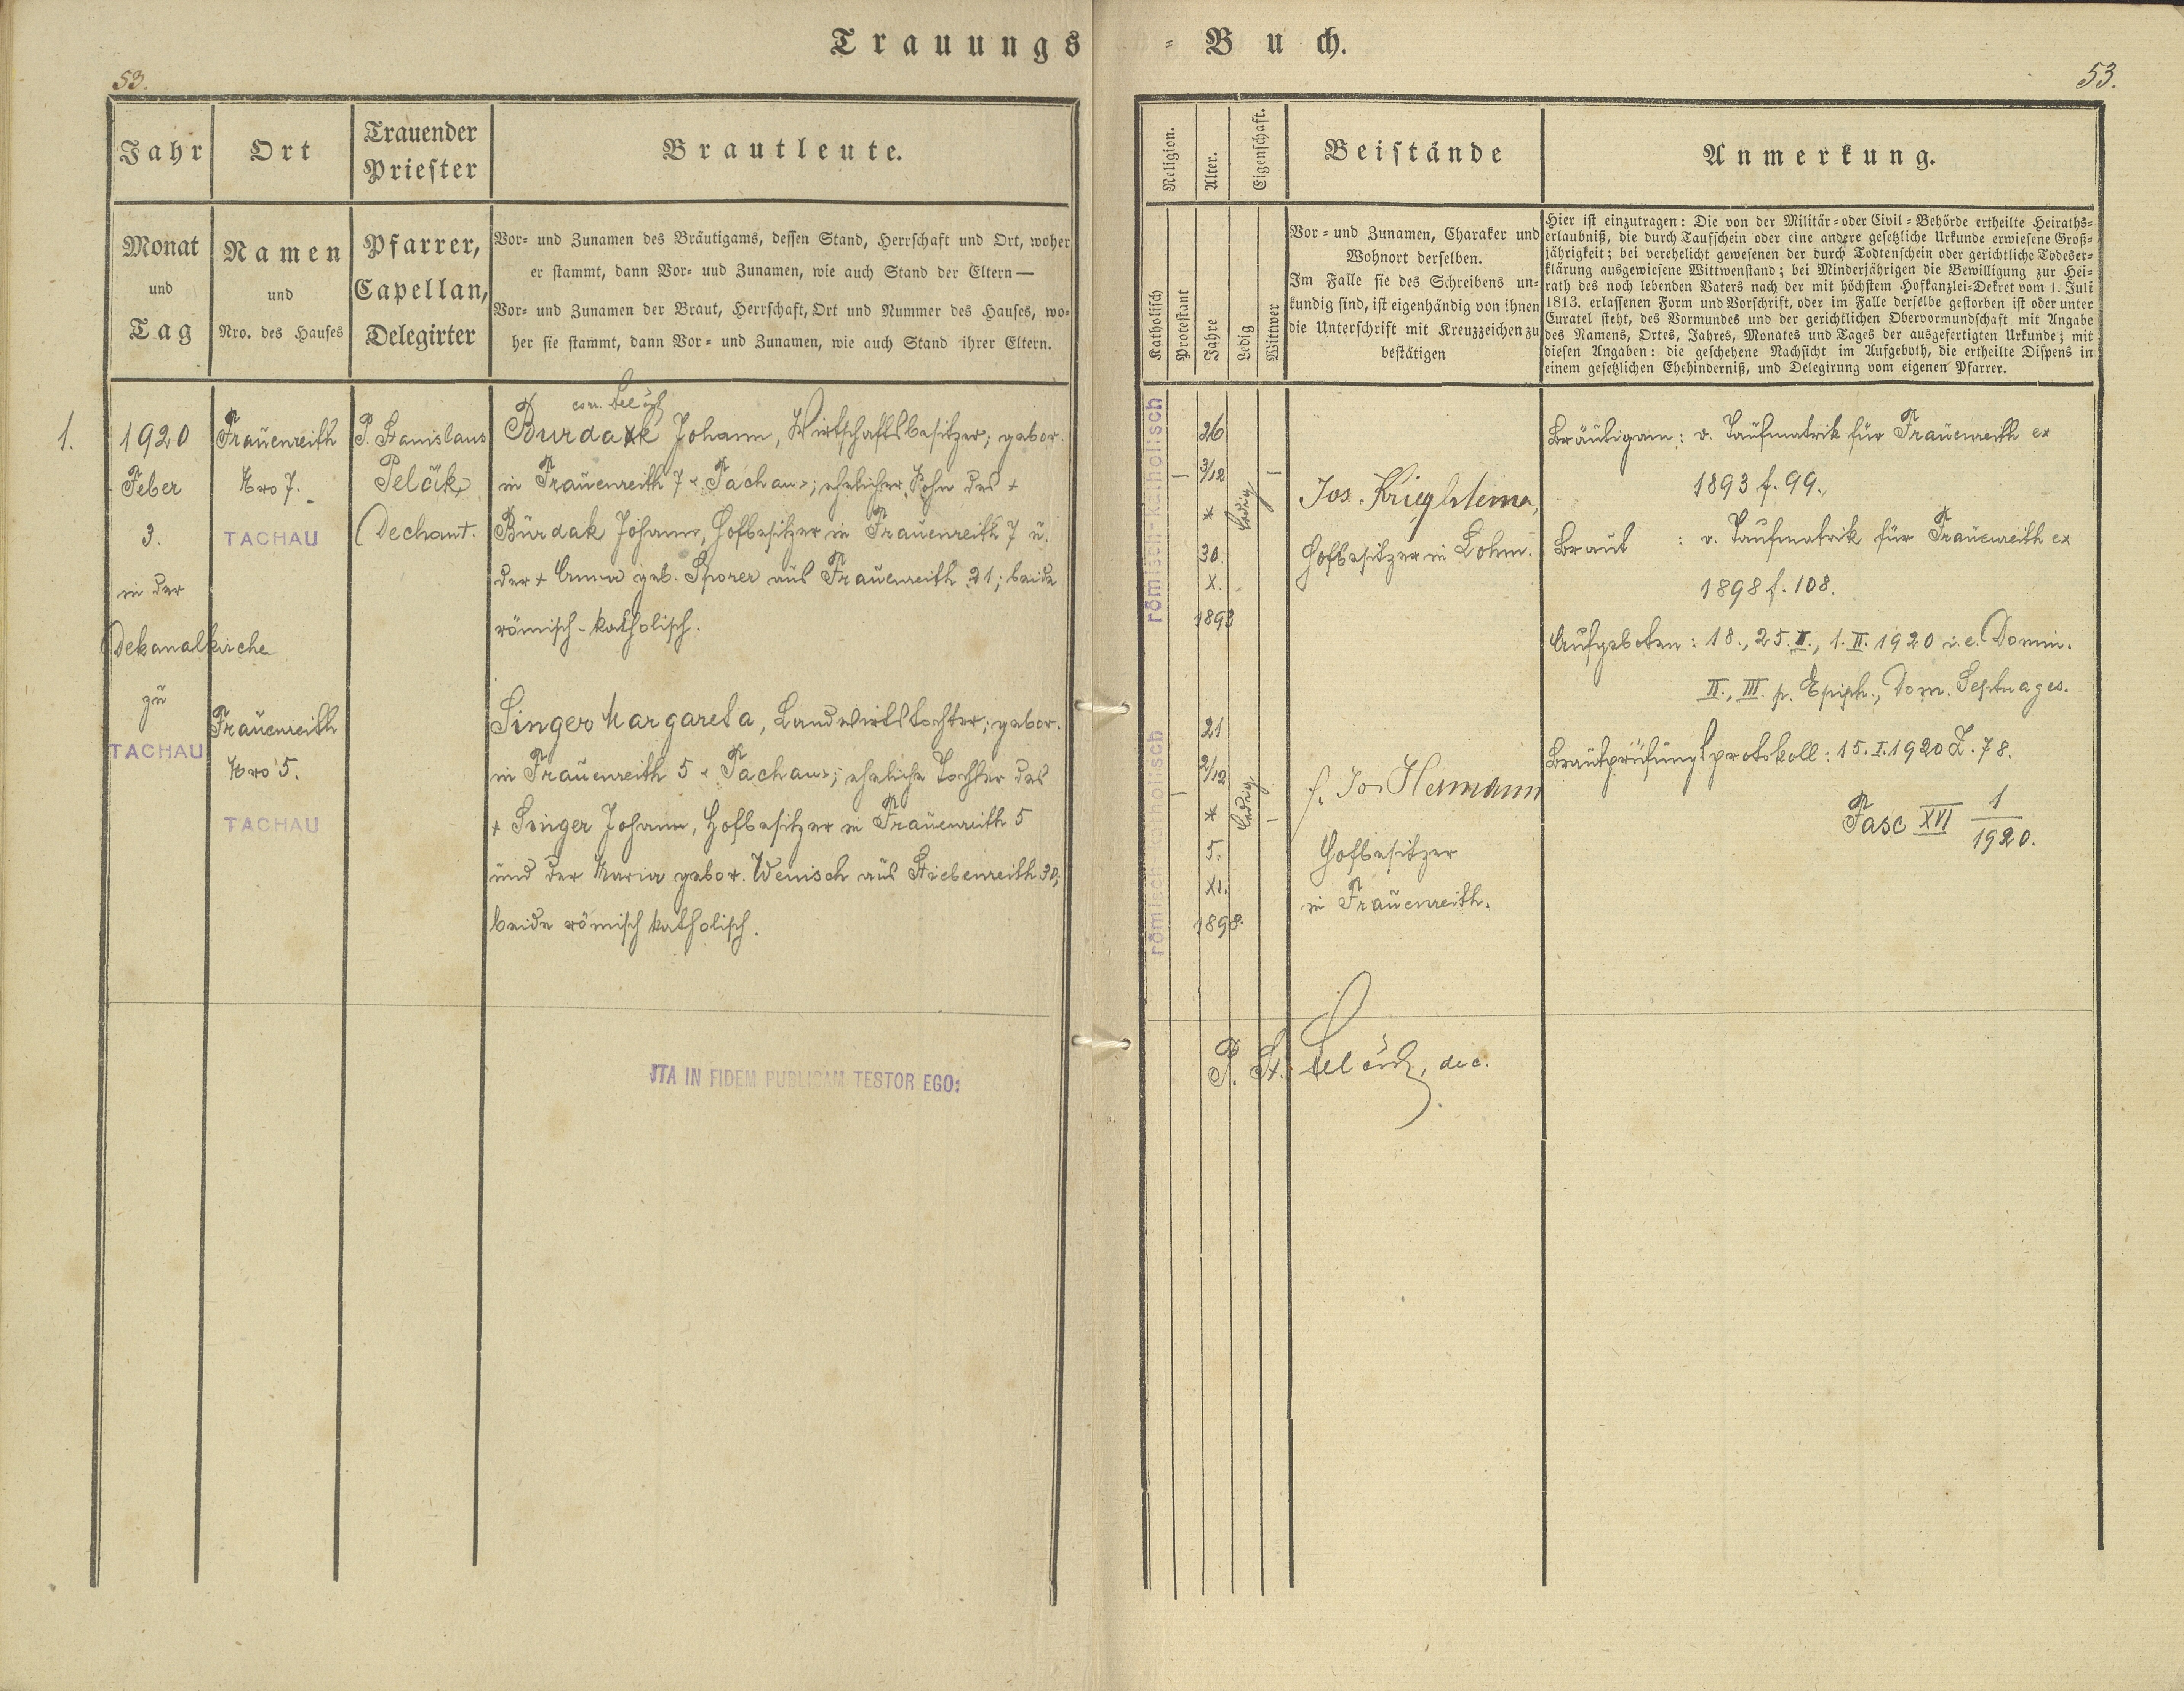 Trauungs = Buch.
53.
53.
Jahr
Ort
Trauender
Priester
Brautleute.
Monat
und
Tag
Namen
und
Nro. des Hauses
Pfarrer,
Capellan,
Delegirter
Vor- und Zunamen des Bräutigams, dessen Stand, Herrschaft und Ort, woher
er stammt, dann Vor- und Zunamen, wie auch Stand der Eltern —
Vor- und Zunamen der Braut, Herrschaft, Ort und Nummer des Hauses, wo-
her sie stammt, dann Vor- und Zunamen, wie auch Stand ihrer Eltern.
1.
1920
Feber
3.
in der
Dekanalkirche
zu
TACHAU
Frauenreith
Nro 7.
TACHAU
Frauenreith
Nro 5.
TACHAU
P. Stanislaus
Pelčák,
Dechant.
Burdak Johann, Wirtschaftsbesitzer; gebor.
in Frauenreith 7 "Tachau"; ehelicher Sohn des +
Burdak Johann, Hofbesitzer in Frauenreith 7 u.
der + Anna geb. Sporer aus Frauenreith 21; beide
römisch-katholisch.
Singer Margareta, Landwirtstochter; gebor.
in Frauenreith 5 "Tachau"; eheliche Tochter des
+ Singer Johann, Hofbesitzer in Frauenreith 5
und der Maria gebor. Wenisch aus Stiebenreith 30;
beide römisch katholisch.
JTA IN FIDEM PUBLICAM TESTOR EGO:
Religion.
Alter.
Eigenschaft.
Beistände
Anmerkung.
Katholisch
Protestant
Jahre
Ledig
Wittwer
Vor- und Zunamen, Charakter und
Wohnort derselben.
Im Falle sie des Schreibens un-
kundig sind, ist eigenhändig von ihnen
die Unterschrift mit Kreuzzeichen zu
bestätigen
Hier ist einzutragen: Die von der Militär- oder Civil-Behörde ertheilte Heiraths-
erlaubniß, die durch Taufschein oder eine andere gesetzliche Urkunde erwiesene Groß-
jährigkeit; bei verehelicht gewesenen der durch Todtenschein oder gerichtliche Todeser-
klärung ausgewiesene Wittwenstand; bei Minderjährigen die Bewilligung zur Hei-
rath des noch lebenden Vaters nach der mit höchstem Hofkanzlei-Dekret vom 1. Juli
1813. erlassenen Form und Vorschrift, oder im Falle derselbe gestorben ist oder unter
Curatel steht, des Vormundes und der gerichtlichen Obervormundschaft mit Angabe
des Namens, Ortes, Jahres, Monates und Tages der ausgefertigten Urkunde; mit
diesen Angaben: die geschehene Nachsicht im Aufgeboth, die ertheilte Dispens in
einem gesetzlichen Ehehinderniß, und Delegirung vom eigenen Pfarrer.
römisch-katholisch
26
3/12
*
30.
X.
1893
ledig
römisch-katholisch
21
2/12
*
5.
XI.
1898.
ledig
Hofbesitzer in Lohm.
Hofbesitzer
in Frauenreith.
P. St. Pelčák, dec.
Bräutigam: v. Taufmatrik für Frauenreith ex
1893 f. 99.
Braut : v. Taufmatrik für Frauenreith ex
1898 f. 108.
Aufgeboten: 18., 25. I., 1. II. 1920 i. e. Domin.
II., III. p. Epiph., Dom. Septuages.
Brautprüfungsprotokoll: 15. I. 1920 Z. 78.
Fasc XVI 1/1920.